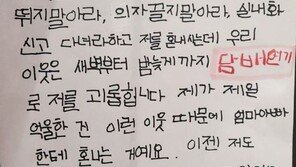 뛰지말아라, 의자끌지말아라, 실내화
신고 다녀라하고 저를 혼내시는데 우리
이웃은 새벽부터 밤늦게까지 담배연기
로 저를 괴롭힙니다 제가 제일
억울한 건 이런 이웃 때문에 엄마아빠
한테 혼나는 거예요. 이젠 저도